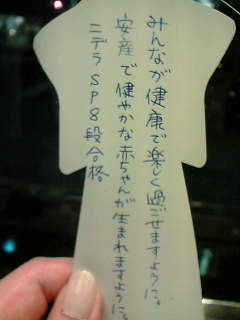 みんなが健康で楽しく過ごせますように。
安産で健やかな赤ちゃんが生まれますように。
ニデラSP8段合格。